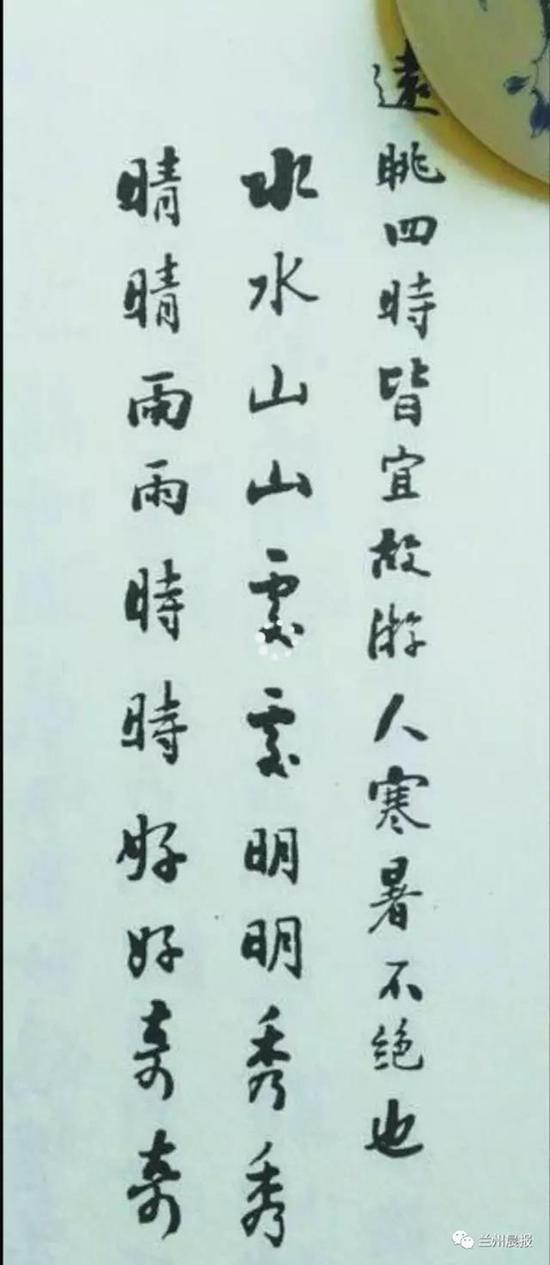 遠眺四時皆宜故游人寒暑不絕也
水水山山處處明明秀秀
晴晴雨雨時時好好奇奇
兰州晨报